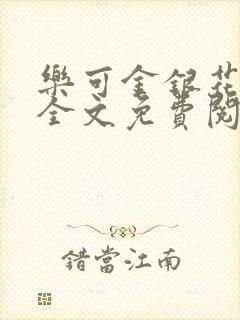 樂可金銀花
全文免費閱
錯當江南